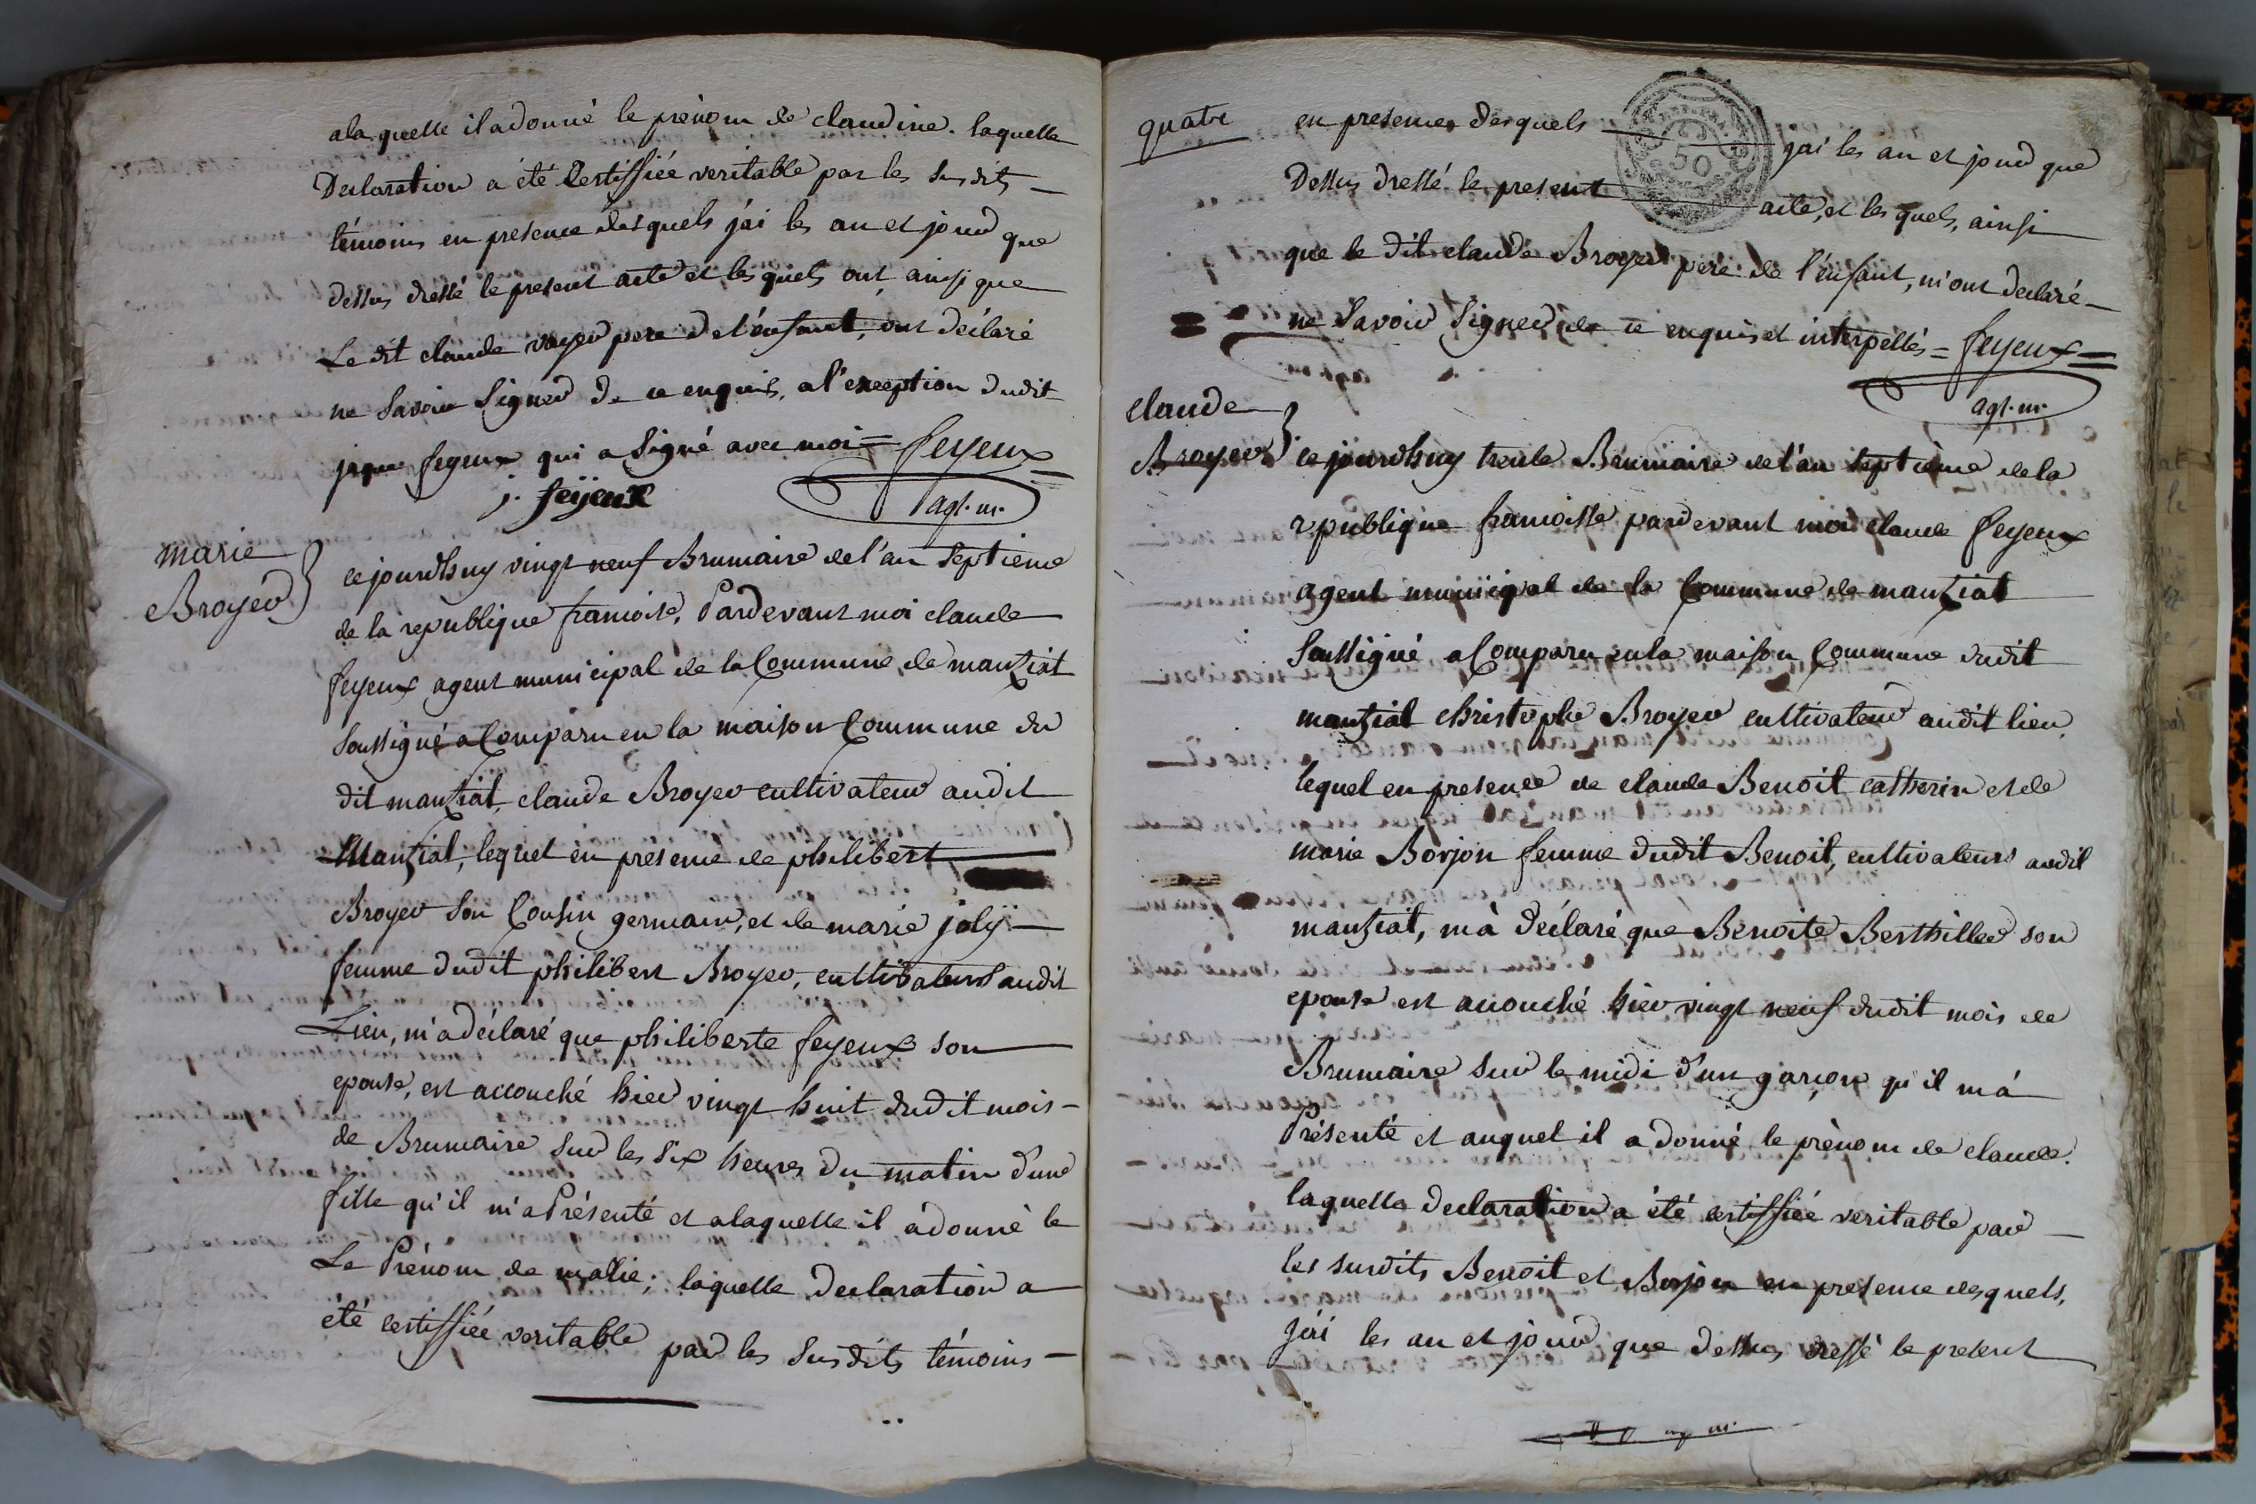 ala quelle il a donné le prénom de claudine. laquelle
Declaration a été Certiffiée veritable par les susdits
témoins en presence desquels j'ai les an et jour que
dessus dressé le present acte et lesquels ont, ainsi que
Le dit claude voyer pere de l'enfant, ont déclaré
ne Savoir Signer de ce enquis, a l'exception dudit
feyeux qui a Signé avec moi = feyeux
j. feijeux
agt. m.
marie
Broyer
cejourdhuy vingt neuf Brumaire de l'an Septieme
de la republique francoise, Pardevant moi claude
feyeux agent municipal de la Commune de manziat
Soussigné a Comparu en la maison Commune du
dit manziat, claude Broyer cultivateur audit
Manziat, lequel en presence de philibert
Broyer son Cousin germain, et de marie joly
femme dudit philibert Broyer, cultivateurs audit
Lieu, m'a déclaré que philiberte feyeux son
epouse, est accouché hier vingt huit dudit mois
de Brumaire sur les six heures du matin d'une
fille qu'il m'a Présenté et a laquelle il a donné le
Le Prénom de marie; laquelle Declaration a
été certiffiée veritable par les Susdits témoins
quatre
en presence desquels j'ai les an et jour que
Dessus dressé le present acte, et lesquels, ainsi
que le dit claude Broyer pere de l'enfant, m'ont declaré
ne Savoir Signer de ce enquis et interpellés = feyeux =
agt. m.
claude
Broyer
cejourdhuy trente Brumaire de l'an septième de la
republique francoisse pardevant moi claude feyeux
agent municipal de la Commune de manziat
Soussigné a Comparu en la maison Commune dudit
manziat christophe Broyer cultivateur audit lieu,
lequel en presence de claude Benoit catherin et de
marie Borjon femme dudit Benoit, cultivateurs audit
manziat, m'à déclaré que Benoite Berthiller son
epouse est acouché hier vingt neuf dudit mois de
Brumaire sur le midi d'un garcon qu'il m'à
Présenté et auquel il a donné le prènom de claude.
laquelle declaration a été certiffiée veritable par
les susdits Benoit et Borjon en presence desquels,
j'ai les an et jour que dessus dressé le present